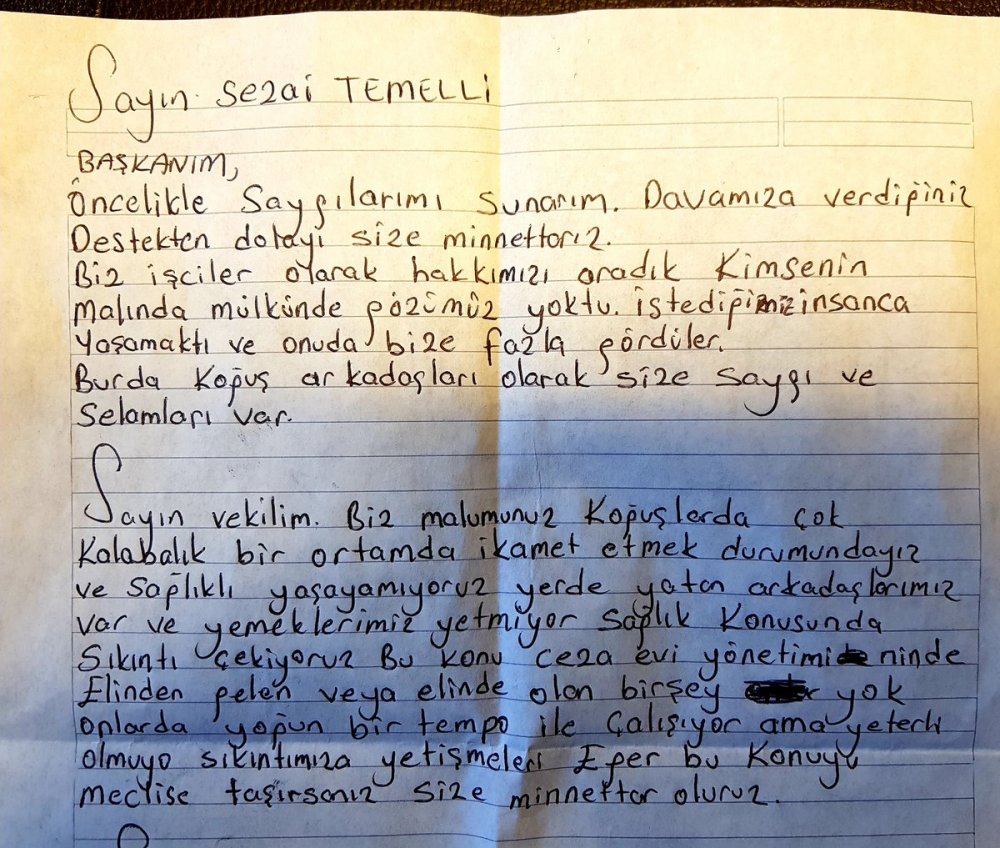 Sayın Sezai TEMELLİ
BAŞKANIM,
Öncelikle Saygılarımı Sunarım. Davamıza verdiğiniz
Destekten dolayı size minnettarız.
Biz işciler olarak hakkımızı aradık Kimsenin
Malında mülkünde gözümüz yoktu. istediğimiz insanca
Yaşamaktı ve onuda bize fazla gördüler.
Burda Koğuş arkadaşları olarak size saygı ve
Selamları var.
Sayın vekilim. Biz malumunuz Koğuşlarda çok
Kalabalık bir ortamda ikamet etmek durumundayız
ve Sağlıklı yaşayamıyoruz yerde yatan arkadaşlarımız
var ve yemeklerimiz yetmiyor Sağlık Konusunda
Sıkıntı Çekiyoruz Bu konu ceza evi yönetimi ninde
Elinden gelen veya elinde olan birşey yok
onlarda yoğun bir tempo ile Çalışıyor ama yeterli
olmuyo sıkıntımıza yetişmeleri Eğer bu Konuyu
meclise taşırsanız size minnettar oluruz.